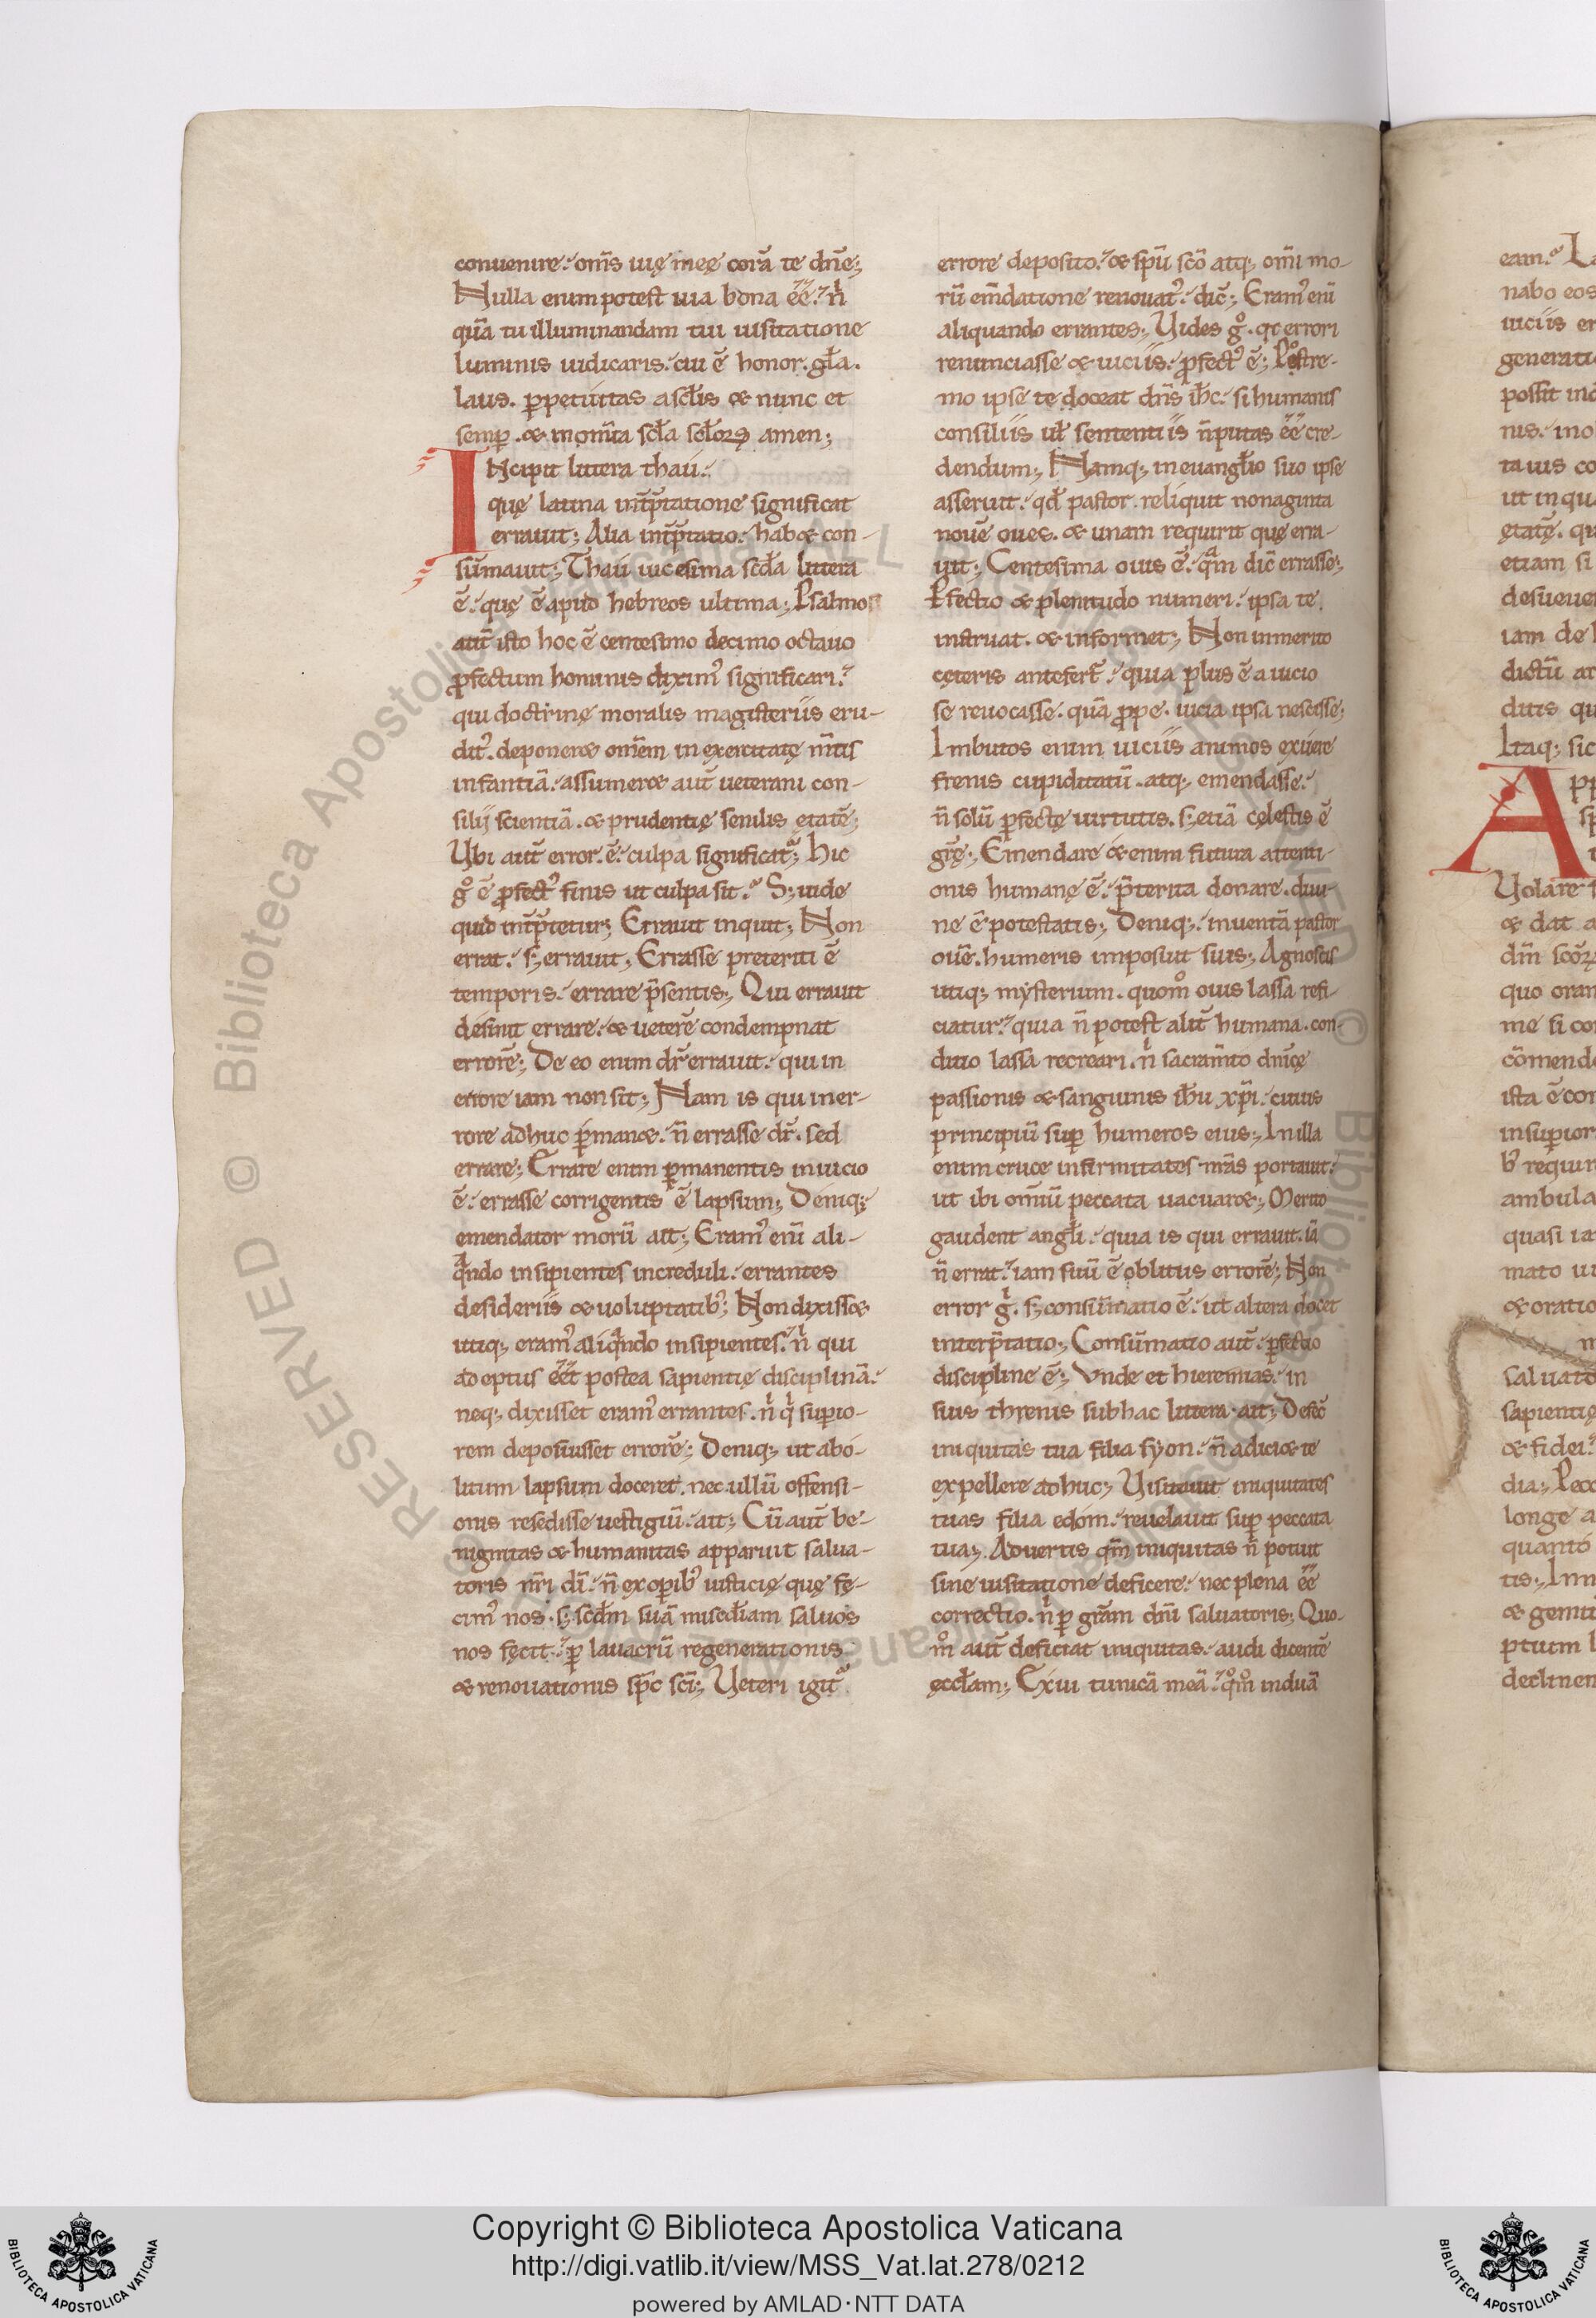 conuenire. om̄s uię meę corā te dn̄e;
Nulla enim potest uia bona ee᷃. n̍
quā tu illuminandam tui uisitatione
luminis iudicaris. cui ē honor. gl̄a.
laus. ꝑpetuitas a scl̄is & nunc et
semꝑ. & in om̄ia scl̄a scl̄oꝝ amen;
INcipit littera thaú.
quę latina int̄p̄tatione significat
errauit; Alia int̄p̄tatio. hab& con-
sūmauit; Thaú uicesima scd̄a littera
ē. quę ē apud hebreos ultima; Psalmo
aut̄ isto hoc ē centesimo decimo octauo
ꝓfectum hominis diximꝰ significari.
qui doctrinę moralis magisteriis eru-
ditꝰ. deponer& om̄em inexercitatę m̄tis
infantiā. assumer& aut̄ ueterani con-
silij scientiā. & prudentię senilis ętatē;
Ubi aut̄ error. ē. culpa significat᷑; Hic
gͦ ē ꝓfectꝰ finis ut culpa sit. S; uide
quid int̄p̄tetur; Errauit inquit; Non
errat. s; errauit; Errasse preteriti ē
temporis. errare p̄sentis; Qui errauit
desinit errare. & ueterē condempnat
errorē; De eo enim dr̄ errauit. qui in
errore iam non sit; Nam is qui in er-
rore adhuc ꝑman&. n̄ errasse dr̄. sed
errare; Errare enim ꝑmanentis in uicio
ē. errasse corrigentis ē lapsum; Deniq;
emendator morū ait; Eramꝰ eni᷃ ali-
qͣndo insipientes increduli. errantes
desideriis & uoluptatibꝰ; Non dixiss&
utiq; eramꝰ aliqͣndo insipientes. n̍ qui
adeptus eet᷃ postea sapientię disciplinā.
neq; dixisset eramꝰ errantes. n̍ qͥ superio-
rem deposuisset errorē; Deniq; ut abo-
litum lapsum doceret. nec ullū offensi-
onis resedisse uestigiū. ait; Cū aut̄ be-
nignitas & humanitas apparuit salua-
toris nr̄i dī. n̄ ex oꝑibꝰ iusticię quę fe-
cimꝰ nos. s; scd̄m suā misc̄diam saluos
nos fecit. ꝑ lauacrū regenerationis
& renouationis sp̄c sc̄i; Ueteri igit᷑
errore deposito. & sp̄u sc̄o atq; om̄i mo-
rū em̄datione renouatꝰ. dic̄; Eramꝰ eni᷃
aliquando errantes; Uides gͦ. qͥ errori
renunciasse & uiciis. ꝓfectꝰ ē; Postre-
mo ipse te doceat dn̄s ih̄c. si humanis
consiliis ul̄ sententiis n̄ putas ee᷃ cre-
dendum; Namq; in euangl̄io suo ipse
asseruit. qd̄ pastor reliquit nonaginta
nouē oues. & unam requirit quę erra-
uit; Centesima ouis ē. qͣm dic̄ errasse;
Ꝑfectio & plenitudo numeri. ipsa te
instruat. & informet; Non inmerito
ceteris antefert᷑. quia plus ē a uicio
se reuocasse. quā ꝓpe. uicia ipsa nescisse;
Imbutos enim uiciis animos exuere
frenis cupiditatū. atq; emendasse.
n̄ solū ꝑfectę uirtutis. s; etiā cęlestis ē
gr̄ę; Emendare &enim futura attenti-
onis humanę ē. p̄terita donare. diui-
ne ē potestatis; Deniq; inuentā pastor
ouē. humeris imposuit suis; Agnoscis
utiq; mysterium. quomͦ ouis lassa refi-
ciatur. quia n̄ potest alit̄ humana. con-
ditio lassa recreari. n̍ sacram̄to dn̄icę
passionis & sanguinis ih̄u xp̄i. cuius
principiū suꝑ humeros eius; In illa
enim cruce infirmitates nr̄as portauit.
ut ibi om̄iū peccata uacuar&; Merito
gaudent angl̄i. quia is qui errauit. iā
n̄ errat. iam suū ē oblitus errorē; Non
error gͥ. s; consūmatio ē. ut altera docet
interp̄tatio; Consūmatio aut̄. ꝑfectio
discipline ē; Vnde et hieremias. in
suis threnis sub hac littera. ait; Defec̄
iniquitas tua filia syon. n̄ adici& te
expellere adhuc; Uisitauit iniquitates
tuas filia edóm. reuelauit suꝑ peccata
tua; Aduertis qm̄ iniquitas n̄ potuit
sine uisitatione deficere. nec plena ee᷃
correctio. n̍ ꝑ gr̄am dn̄i saluatoris; Quo-
mͦ aut̄ deficiat iniquitas. audi dicentē
ęccl̄am; Exui tunicā meā. qͦmͦ induā
eam. La
nabo eos
uiciis er
generati
possit in
nis. ino
ut in qu
ętatē. qu
etiam si
desueue
iam de
dictū
ditis qu
Itaq; sic
A
Uolare
& dat a
dn̄i
quo oran
me si co
cōmend
ista ē con
insuꝑior
bꝰ requir
ambula
quasi ia
mato
& oratio
saluato
sapientię
& fidei.
dia; Pecc
longe a
quanto
tis; Inn
& gemit
ptum
declinen
Copyright © Biblioteca Apostolica Vaticana
http://digi.vatlib.it/view/MSS_Vat.lat.278/0212
powered by AMLAD·NTT DATA